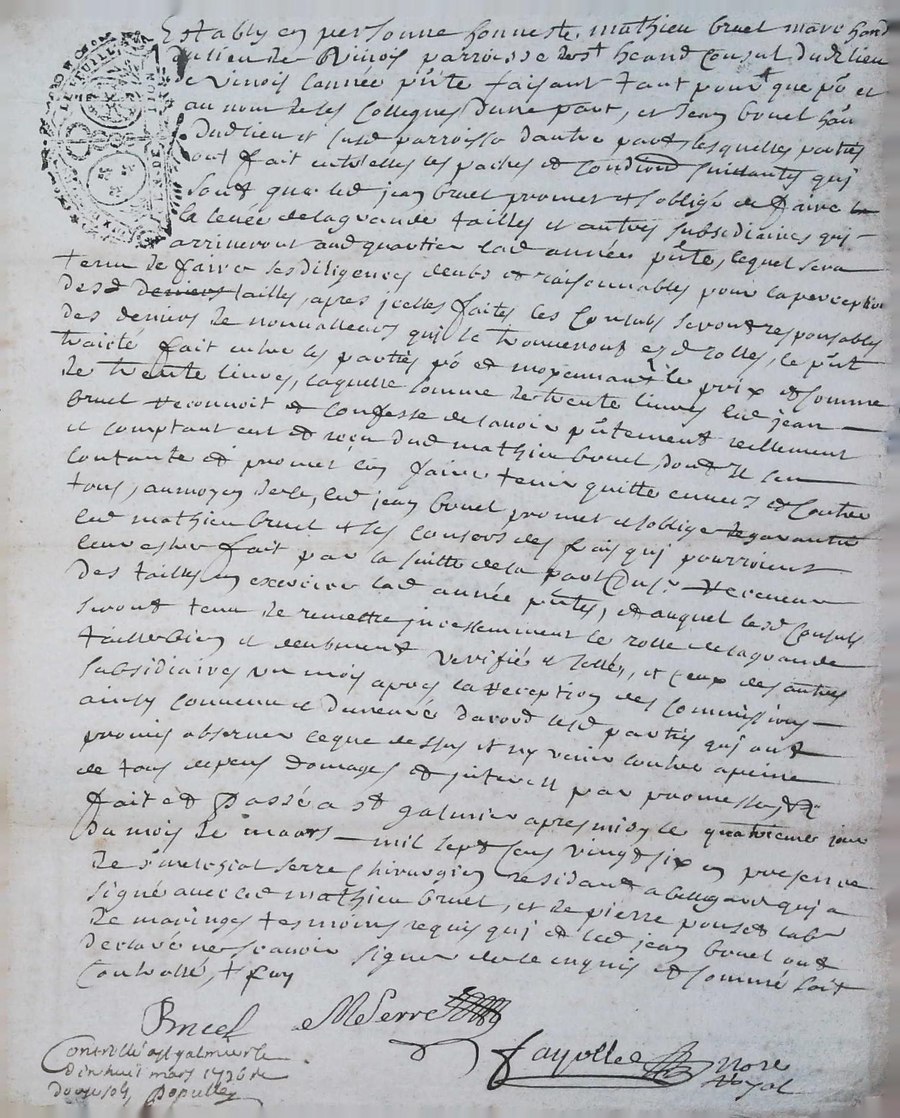 Estably en personne honneste mathieu bruel marchand
du lieu de Vinois parroisse de st heand Consul dud lieu
de Vinois l'annee pnte faisant tant pour que po et
au nom de ses Collegues d'une part, et Jean bruel
dud lieu et susd parroisse d'autre part lesquelles parties
ont fait entr'elles les pactes et Conditions suivantes qui
sont que led jean bruel promet et s'oblige de faire
la levée de la grande taille et autres subsidiaires qui
arriveront aud quartier lad année pnte, lequel sera
tenu de faire les diligences deubs et raisonnables pour la perception
desd deniers tailles, apres jcelles faites les Consuls seront responsables
des deniers de nonvalleurs qui se trouveront esd rolles, le pnt
traicté fait entre les parties po et moyennant le prix et somme
de trente livres, laquelle somme de trente livres led jean
bruel reconnoit et confesse de lavoir pntement reellement
et comptant eut et reçu dud mathieu bruel dont il s'en
contante et promet l'en faire tenir quitte envers et Contre
tous, au moyen de ce, led jean bruel promet et s'oblige de garantir
led mathieu bruel et ses consors des frais qui pourroient
leur estre fait par la suitte de la part receveur
des tailles en exercice lad année pnte, et auquel lesd Consuls
seront tenu de remettre jncessemment le rolle de la grande
taille bien et deubment verifié et , et ceux des autres
subsidiaires un mois apres la reception des Commissions
ainsy convenu et demeuré d'acord lesd parties qui ont
promis observer ce que dessus et n'y venir contre a peine
de tous depens domages et jnterest par promesse,
fait et Passé a st galmier apres midy le quatrieme jour
du mois de mars mil sept cens vingt six en presence
de sr martial serre Chirurgien residant a bellegarde qui a
signé avec led mathieu bruel, et de pierre pouset labr
de maringes tesmoins requis qui et led jean bruel ont
declaré ne scavoir signer de ce enquis et sommé soit
Controllé, + foy
Bruel MSerre
fayolle nore
Royal
Controllé a st galmier le
dixhuit mars 1726 re
douze sols